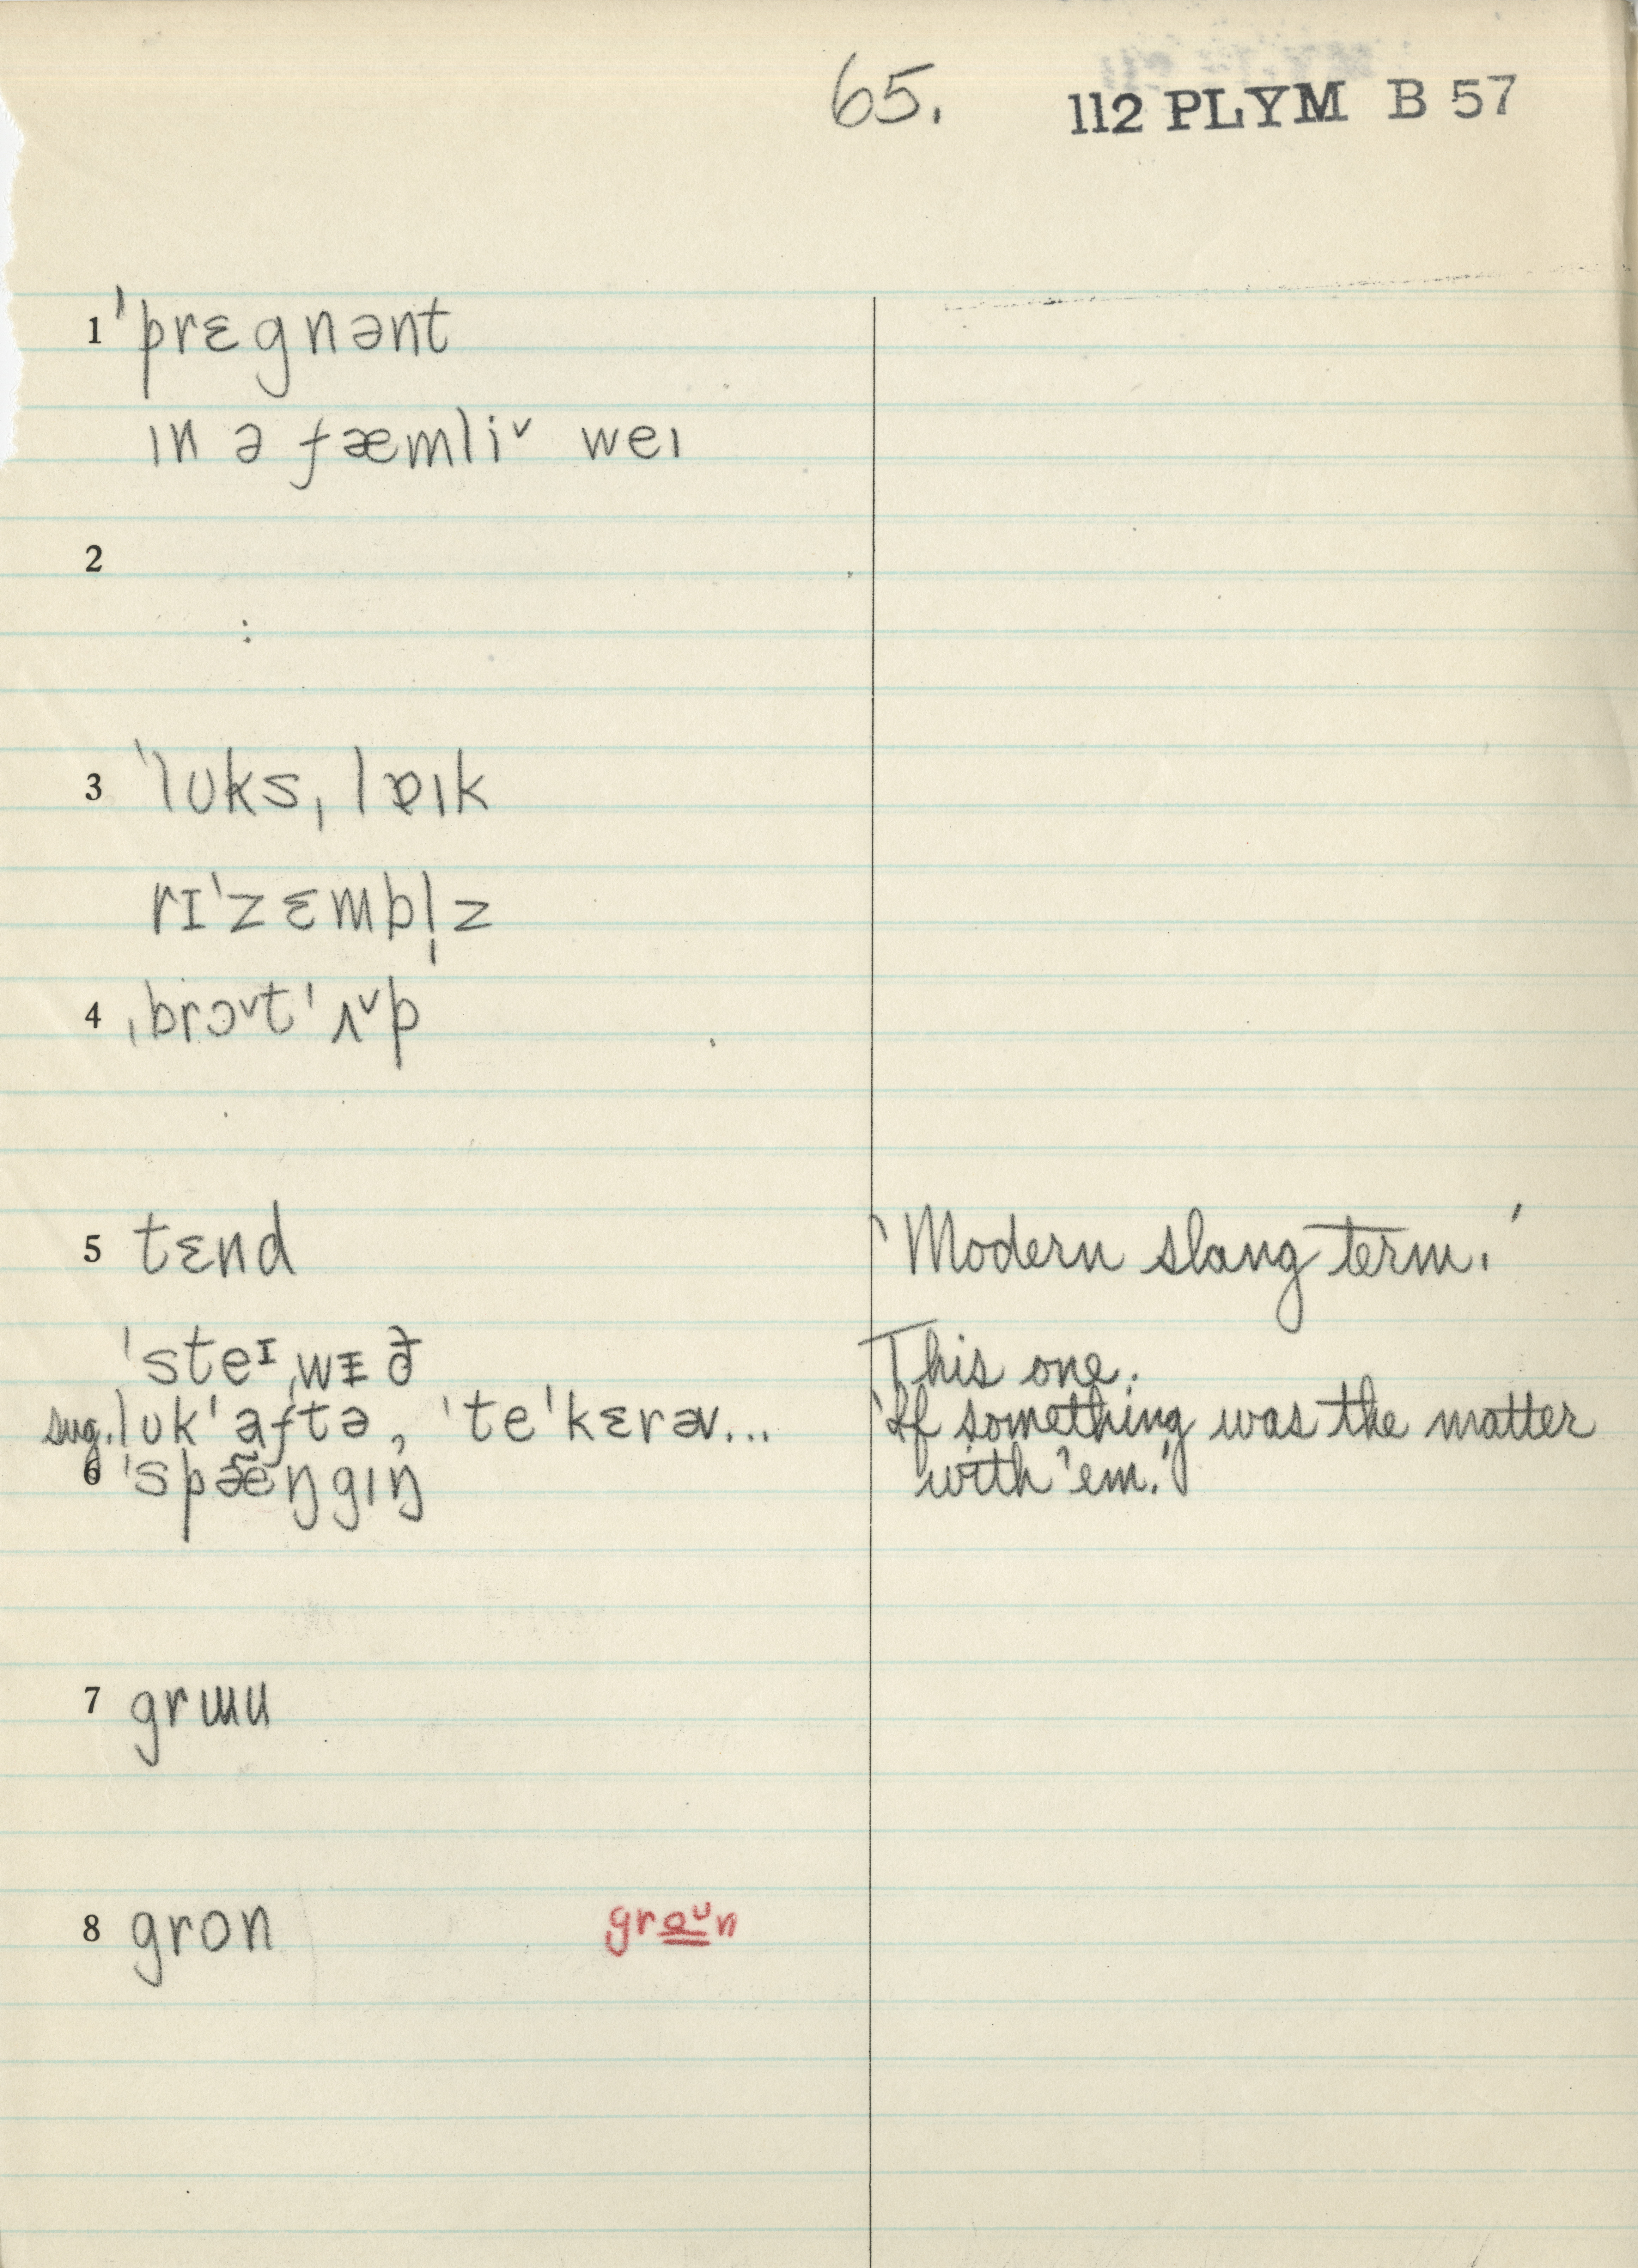 65. 112 PLYM B 57
1 ˈprɛgnənt
ɪn ə fæmli˅ weɪ
2
3 ˈlʊksˌlɐɪk
rɪˈzɛmbl̩z
4 ˌbrɔ˅tˈʌ˅p
5 tɛnd 'Modern slang term.'
ˈsteᶦˌwᵻð This one.
sug. lʊkˈaftə, ˈteˈkɛrəv... 'If something was the matter
6 ˈspæ̃ŋgɪŋ with 'em.'
7 grɯu
8 gron groᶷn